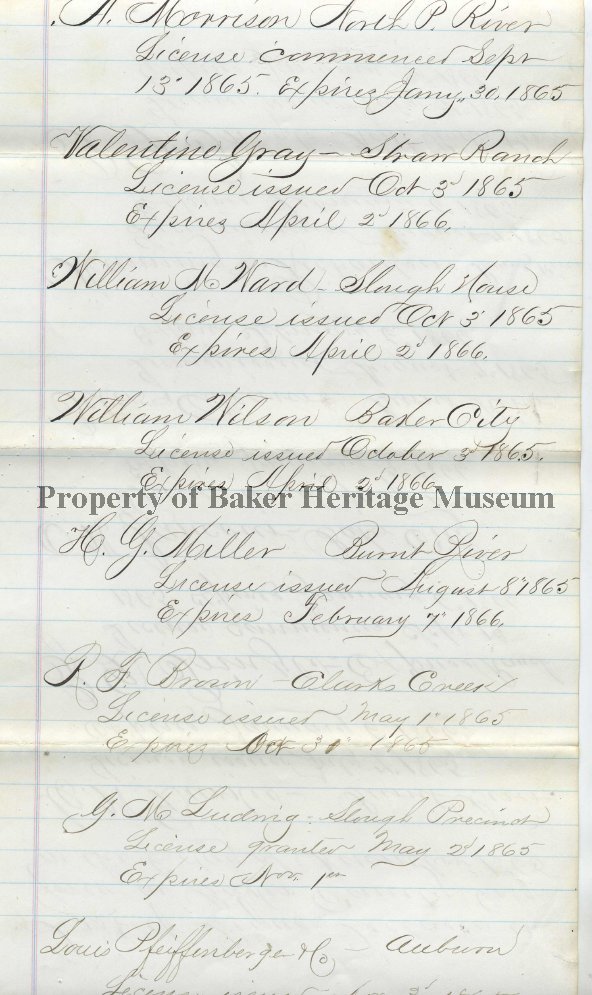 . A. Morrison North P. River
License commenced Sept
13" 1865. Expires Jany. 30, 1865
Valentine Gray – Straw Ranch
License issued Oct 3d 1865
Expires April 2d 1866.
William M Ward – Slough House
License issued Oct 3d 1865
Expires April 2d 1866.
William Wilson Baker City
License issued October 3d 1865.
Expires April 2d 1866
Property of Baker Heritage Museum
H. G. Miller Burnt River
License issued August 8" 1865
Expires February 7" 1866.
R. F. Brown – Clarks Creek
License issued May 1st 1865
Expires Oct 31st 1865
G. M Ludwig – Slough Precinct
License granted May 2d 1865
Expires Nov. 1st
Louis Pfeiffenberger & Co – Auburn
License issued